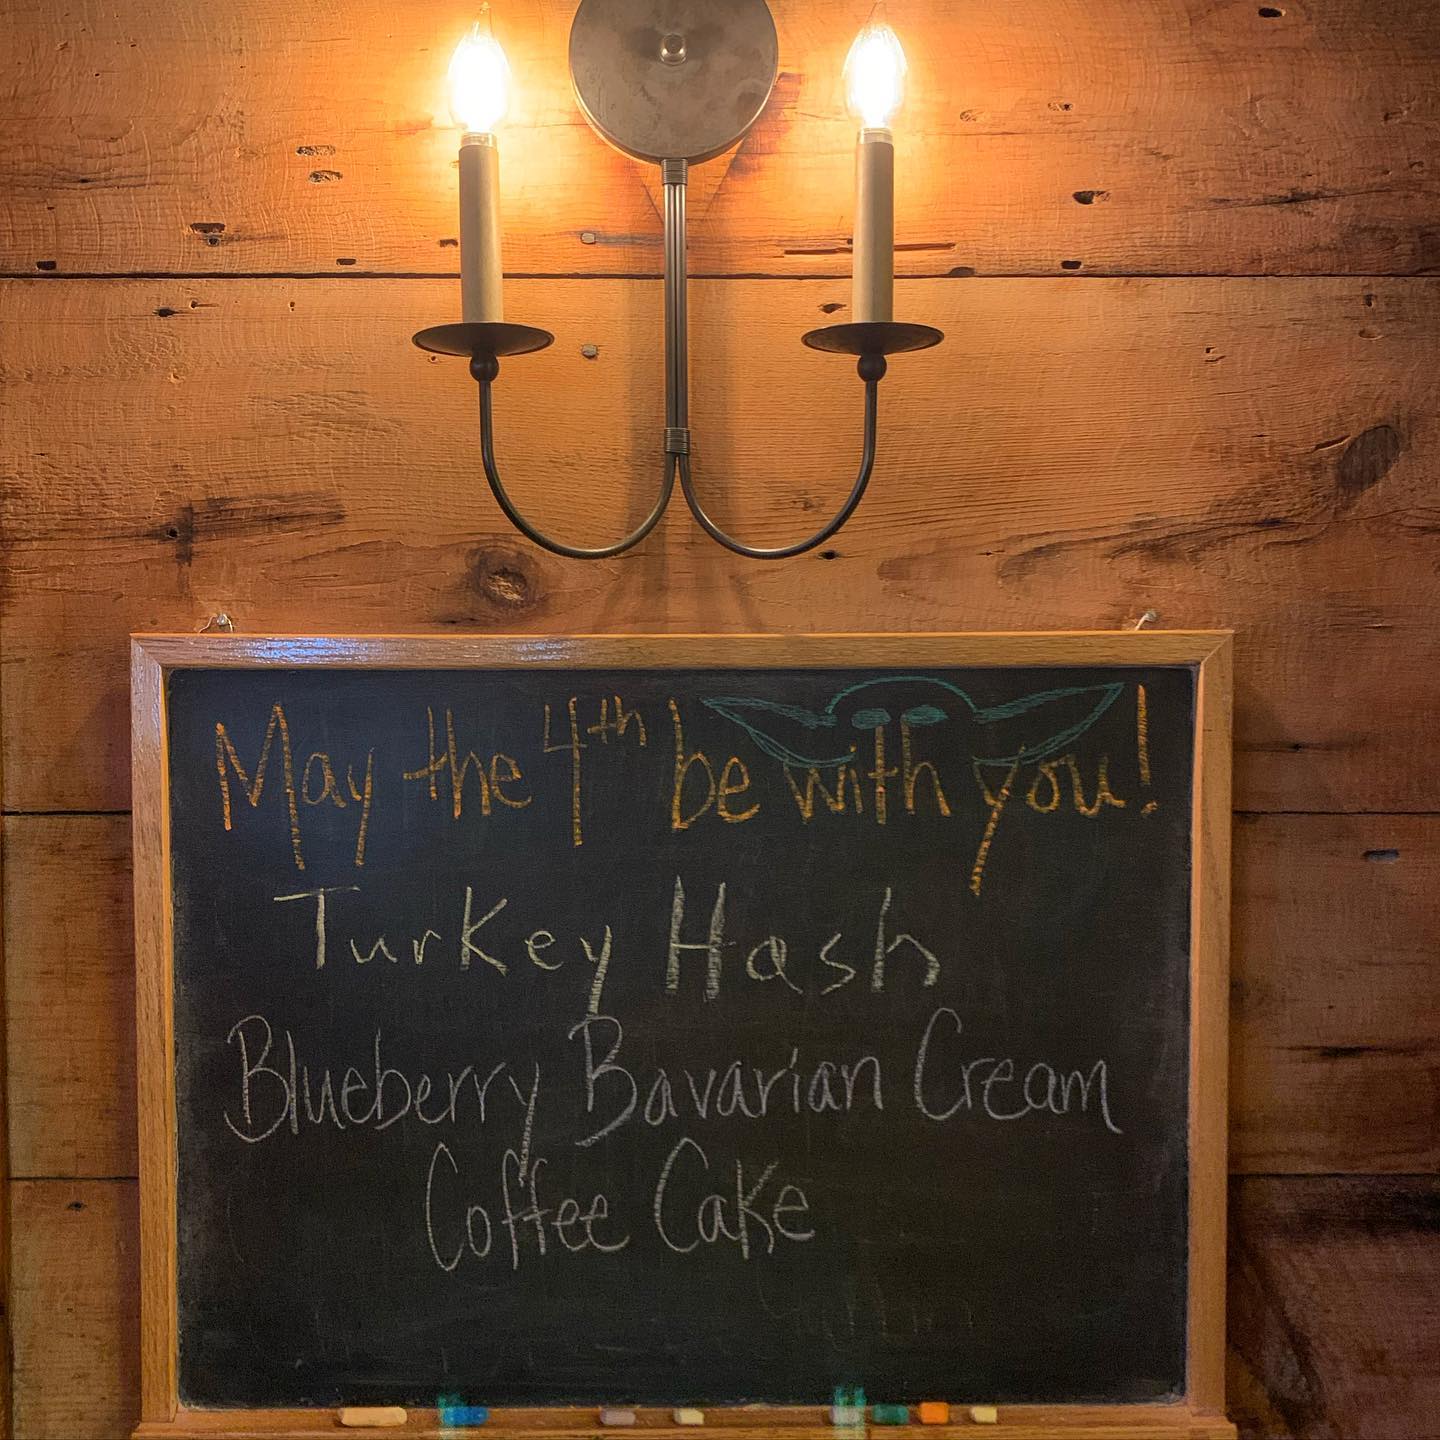 May the 4th be with you!
Turkey Hash
Blueberry Bavarian Cream
Coffee Cake